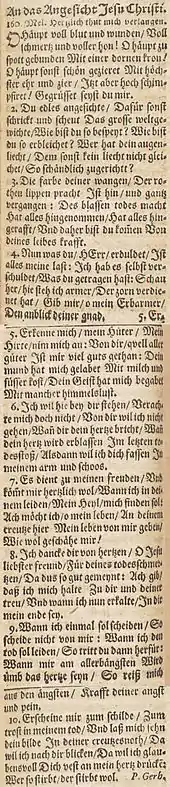 An das Angesicht Jesu Christi.
160. Mel. Hertzlich thut mich verlangen.
O Häupt voll blut und wunden/ Voll
schmertz und voller hon! O häupt zu
spott gebunden Mit einer dornen kron!
O häupt sonst schön gezieret Mit höch-
ster ehr und zier/ Itzt aber hoch schim-
pfiret/ Gegrüsset seyst du mir.
2. Du edles angesichte/ Dafür sonst
schrickt und scheut Das grosse weltge-
wichte/ Wie bist du so bespeyt? Wie bist
du so erbleichet? Wer hat dein augen-
liecht/ Dem sonst kein liecht nicht glei-
chet/ So schändlich zugericht?
3. Die farbe deiner wangen/ Der ro-
then lippen pracht Ist hin/ und gantz
vergangen: Des blassen todes macht
Hat alles hingenommen/ Hat alles hin-
gerafft/ Und daher bist du kom̃en Von
deines leibes krafft.
4. Nun was du/ HErr/ erduldet/ Ist
alles meine last: Ich hab es selbst ver-
schuldet/ Was du getragen hast: Schau
her/ hie steh ich armer/ Der zorn verdie-
net hat/ Gib mir/ o mein Erbarmer/
Den anblick deiner gnad.
5. Er-
5. Erkenne mich/ mein Hüter/ Mein
Hirte/ nim mich an: Von dir/ qvell aller
güter Ist mir viel guts gethan: Dein
mund hat mich gelabet Mit milch und
süsser kost/ Dein Geist hat mich begabet
Mit mancher himmelslust.
6. Ich wil hie bey dir stehen/ Verach-
te mich doch nicht/ Von dir wil ich nicht
gehen/ Wañ dir dein hertze bricht/ Wañ
dein hertz wird erblassen Im letzten to-
desstoß/ Alsdann wil ich dich fassen In
meinem arm und schoos.
7. Es dient zu meinen freuden/ Und
kömt mir hertzlich wol/ Wann ich in dei-
nem leiden/ Mein Heyl/ mich finden sol:
Ach möcht ich/ o mein leben/ An deinem
creutze hier Mein leben von mir geben/
Wie wol geschähe mir!
8. Ich dancke dir von hertzen/ O Jesu
liebster freund/ Für deines todes schmer-
tzen/ Da dus so gut gemeynt: Ach gib/
daß ich mich halte Zu dir und deiner
treu/ Und wann ich nun erkalte/ In dir
mein ende sey.
9. Wann ich einmal sol scheiden/ So
scheide nicht von mir: Wann ich den
tod sol leiden/ So tritt du dann herfür:
Wann mir am allerbängsten Wird
ümb das hertze seyn/ So reiß mich
aus den ängsten/ Krafft deiner angst
und pein.
10. Erscheine mir zum schilde/ Zum
trost in meinem tod/ Und laß mich sehn
dein bilde In deiner creutzesnoth/ Da
wil ich nach dir blicken/ Da wil ich glau-
bensvoll Dich vest an mein hertz drücken:
Wer so stirbt/ der stirbt wol. P. Gerh.